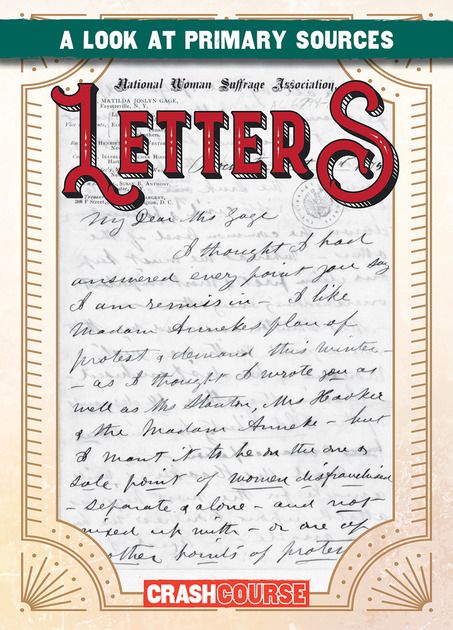 A LOOK AT PRIMARY SOURCES
National Woman Suffrage Association.
MATILDA JOSLYN GAGE,
Fayetteville, N. Y.
LETTERS
SUSAN B. ANTHONY,
My Dear Mrs Gage
I thought I had
answered every point you say
I am remiss in – I like
Madam Annekes plan of
protest & demand this winter –
– as I thought I wrote you as
well as Mrs Stanton, Mrs Hooker
& the Madam Anneke – but
I want it to be on the one &
sole point of women disfranchised
– separate & alone – and not
mixed up with – or one of
other points of protest
CRASHCOURSE